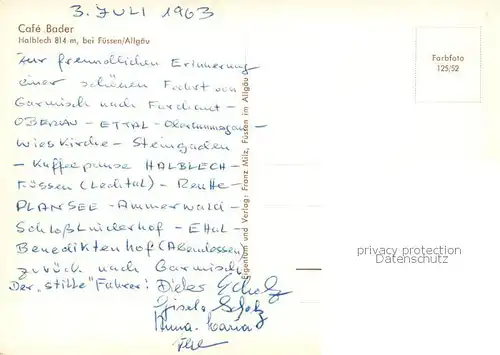 3. JULI 1963
Café Bader
Halblech 814 m, bei Füssen/Allgäu
Farbfoto
125/52
Zur freundlichen Erinnerung
einer schönen Fahrt von
Garmisch nach Farchant -
OBERAU - ETTAL - Oberammergau -
Wieskirche - Steingaden
- Kaffeepause HALBLECH -
Füssen (Lechtal) - Reutte -
PLANSEE - Ammerwald -
Schloß Linderhof - Ettal -
Benediktenhof (Abendessen)
zurück nach Garmisch
Der "stille" Fahrer: Dieter Scholz
Gisela Scholz
Anna-Maria
Eigentum und Verlag: Franz Milz, Füssen im Allgäu
copyright protection
SAMMLER.COM